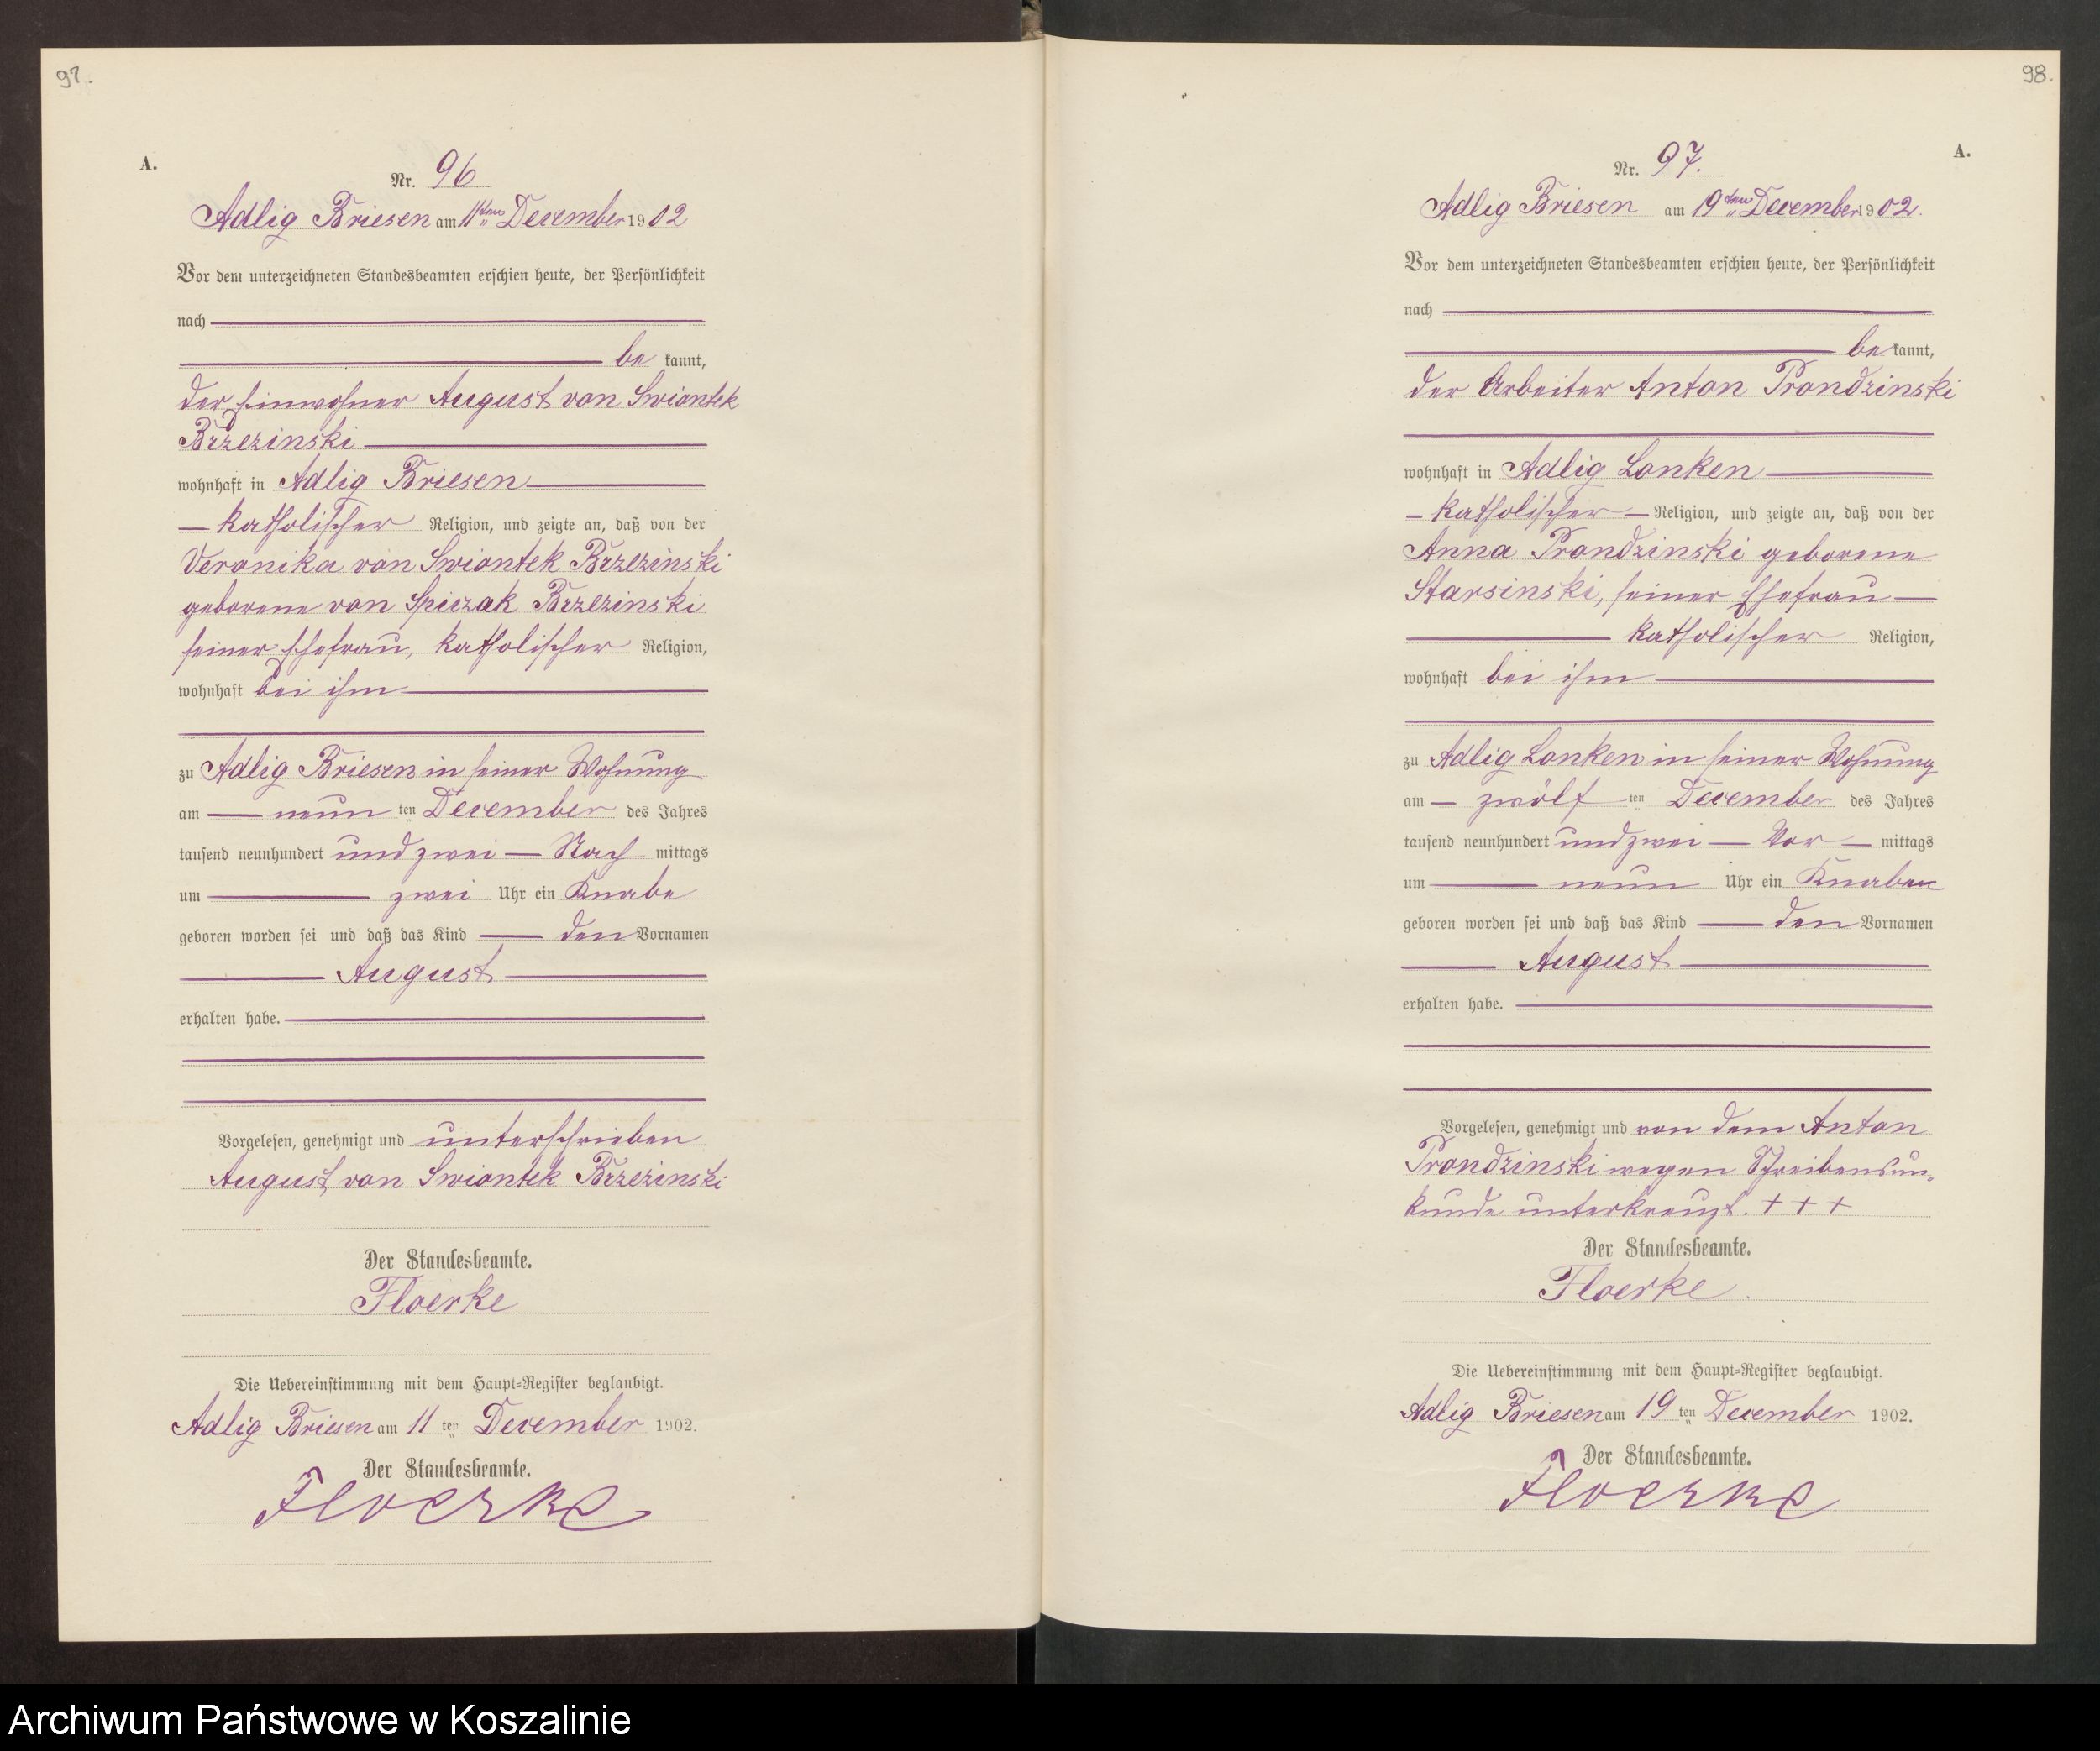 97.
A.
Nr. 96
Adlig Briesen am 11ten December 1902
Vor dem unterzeichneten Standesbeamten erschien heute, der Persönlichkeit
nach
be kannt,
der Einwohner August von Swiontek
Brzezinski
wohnhaft in Adlig Briesen
katholischer Religion, und zeigte an, daß von der
Veronika von Swiontek Brzezinski
geborene von Spiczak Brzezinski
seiner Ehefrau, katholischer Religion,
wohnhaft bei ihm
zu Adlig Briesen in seiner Wohnung
am neun ten December des Jahres
tausend neunhundert und zwei Nach mittags
um zwei Uhr ein Knabe
geboren worden sei und daß das Kind den Vornamen
August
erhalten habe.
Vorgelesen, genehmigt und unterschrieben
August von Swiontek Brzezinski
Der Standesbeamte.
Floerke
Die Uebereinstimmung mit dem Haupt-Register beglaubigt.
Adlig Briesen am 11 ten December 1902.
Der Standesbeamte.
Floerke
98.
A.
Nr. 97.
Adlig Briesen am 19ten December 1902.
Vor dem unterzeichneten Standesbeamten erschien heute, der Persönlichkeit
nach
be kannt,
der Arbeiter Anton Prondzinski
wohnhaft in Adlig Lonken
katholischer Religion, und zeigte an, daß von der
Anna Prondzinski geborene
Starsinski, seiner Ehefrau
katholischer Religion,
wohnhaft bei ihm
zu Adlig Lonken in seiner Wohnung
am zwölf ten December des Jahres
tausend neunhundert und zwei Vor mittags
um neun Uhr ein Knaben
geboren worden sei und daß das Kind den Vornamen
August
erhalten habe.
Vorgelesen, genehmigt und von dem Anton
Prondzinski wegen Schreibensun-
kunde unterkreuzt. + + +
Der Standesbeamte.
Floerke.
Die Uebereinstimmung mit dem Haupt-Register beglaubigt.
Adlig Briesen am 19 ten December 1902.
Der Standesbeamte.
Floerke
Archiwum Państwowe w Koszalinie